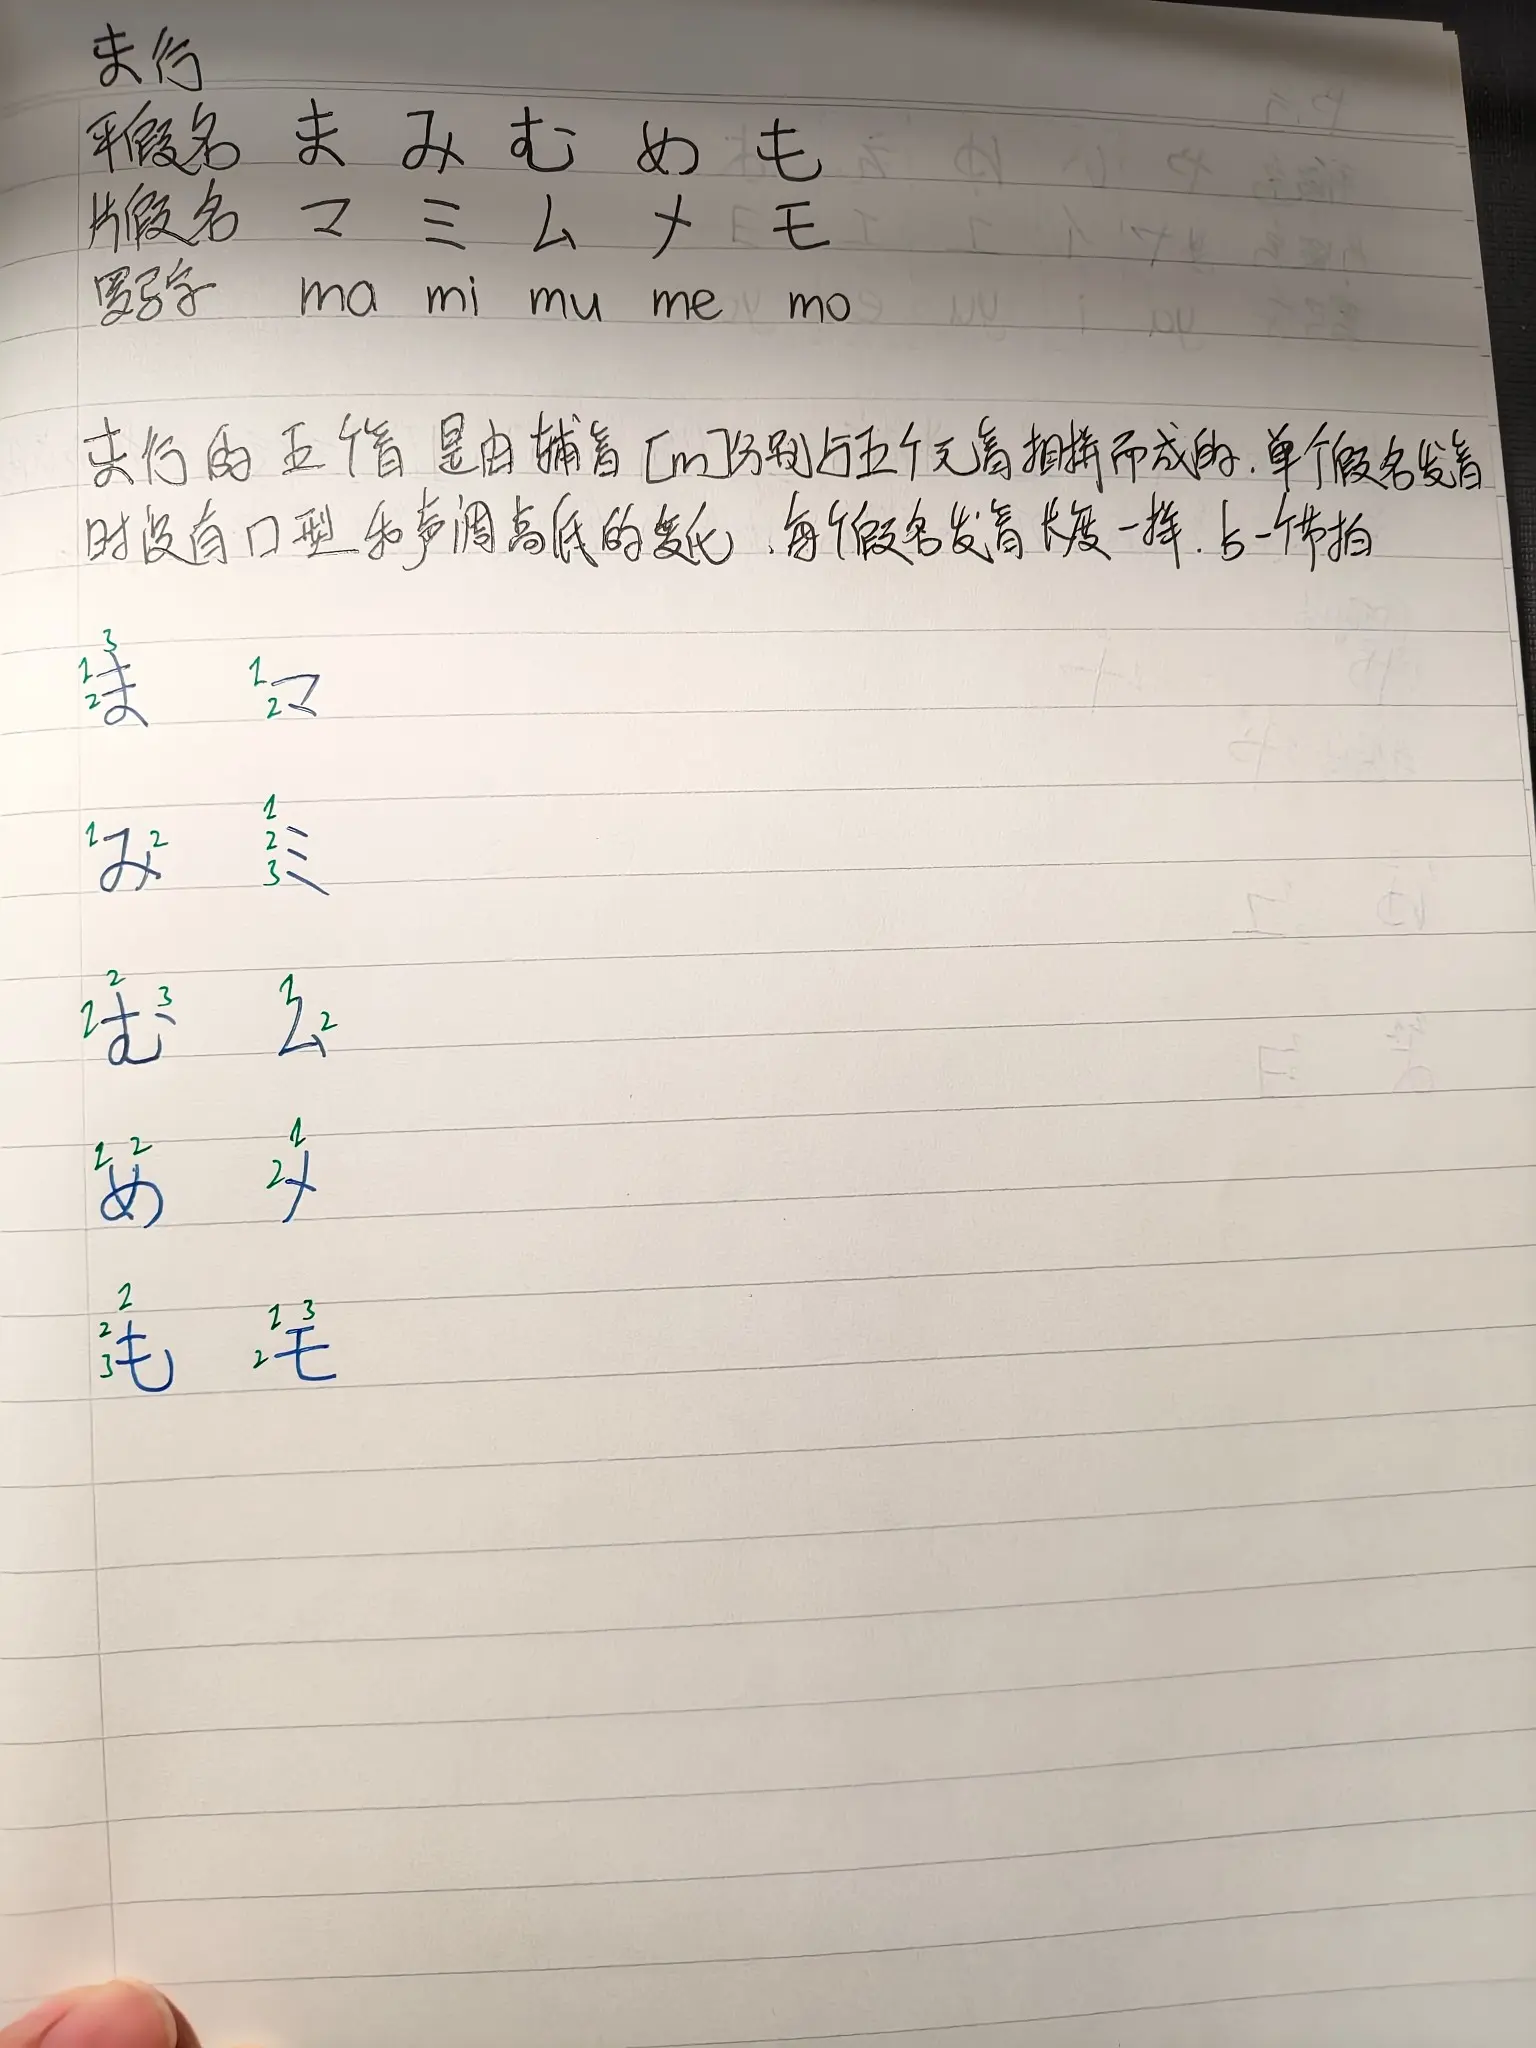 ま行
平假名 ま み む め も
片假名 マ ミ ム メ モ
罗马字 ma mi mu me mo
ま行的五个音是由辅音[m]分别与五个元音相拼而成的.单个假名发音
时没有口型和声调高低的变化.每个假名发音长度一样.占一个节拍
3
1 ま 1 マ
2 2
1
1 み 2 2 ミ
3
2 1
1 む 3 ム 2
1 2 1
め 2 メ
1
2 も 1 3
3 2 モ